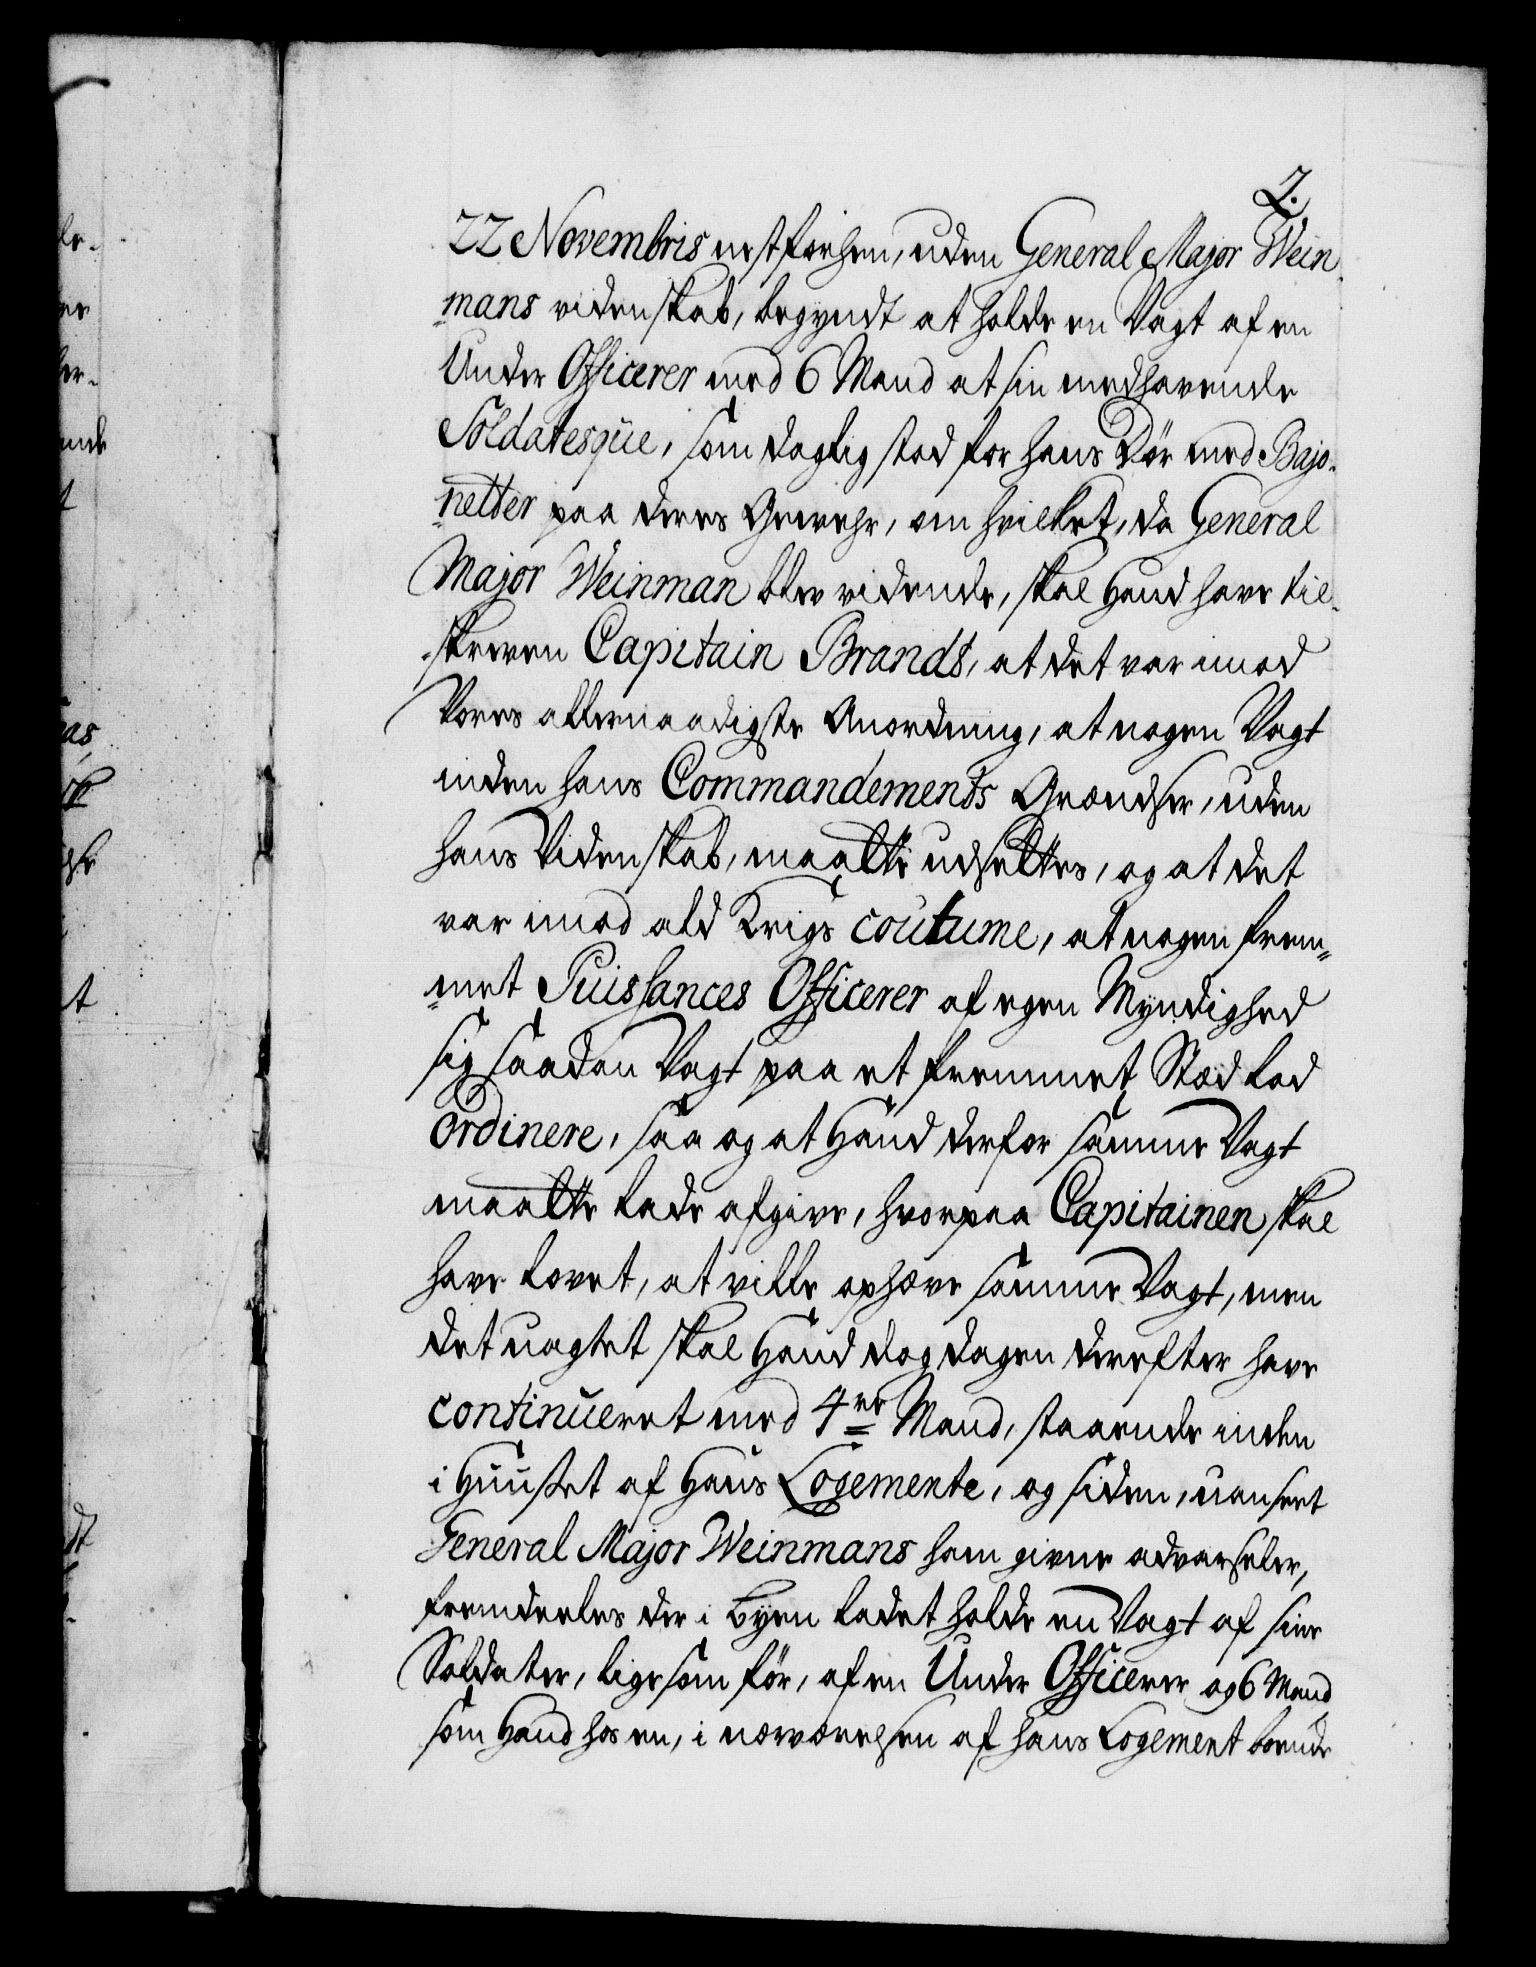 2.
22 Novembris nestforhen, uden General Major Wein-
mans videnskab, begyndt at holde en Vagt af en
Under Officerer med 6 Mand at sin medhavende
Soldatesqve, som daglig stod for hans Dör med Bajo-
netter paa deres Gewehr, om hvilket, da General
Major Weinman blev vidende, skal Hand have til-
skreven Capitain Brandt, at det var imod
Vores allernaadigste Anordning, at nogen Vagt
inden hans Commandements Grændser, uden
hans Videnskab, maatte udsettes, og at det
var imod ald Krigs coutume, at nogen frem-
met Puissances Officerer af egen Myndighed
sig saadan Vagt paa et fremmet Stæd lod
ordinere, saa og at Hand derfor samme Vagt
maatte lade afgive, hvorpaa Capitainen skal
have lovet, at ville ophæve samme Vagt, men
det uagtet skal Hand dog dagen derefter have
continueret med 4re Mand, staaende inden
i Huuset af Hans Logemente, og siden, uanseet
General Major Weinmans ham givne advarseler,
fremdeeles der i Byen ladet holde en Vagt af sine
Soldater, ligesom før, af en Under Officerer og 6 Mand
som Hand hos en, i nærværelsen af hans Logement boende